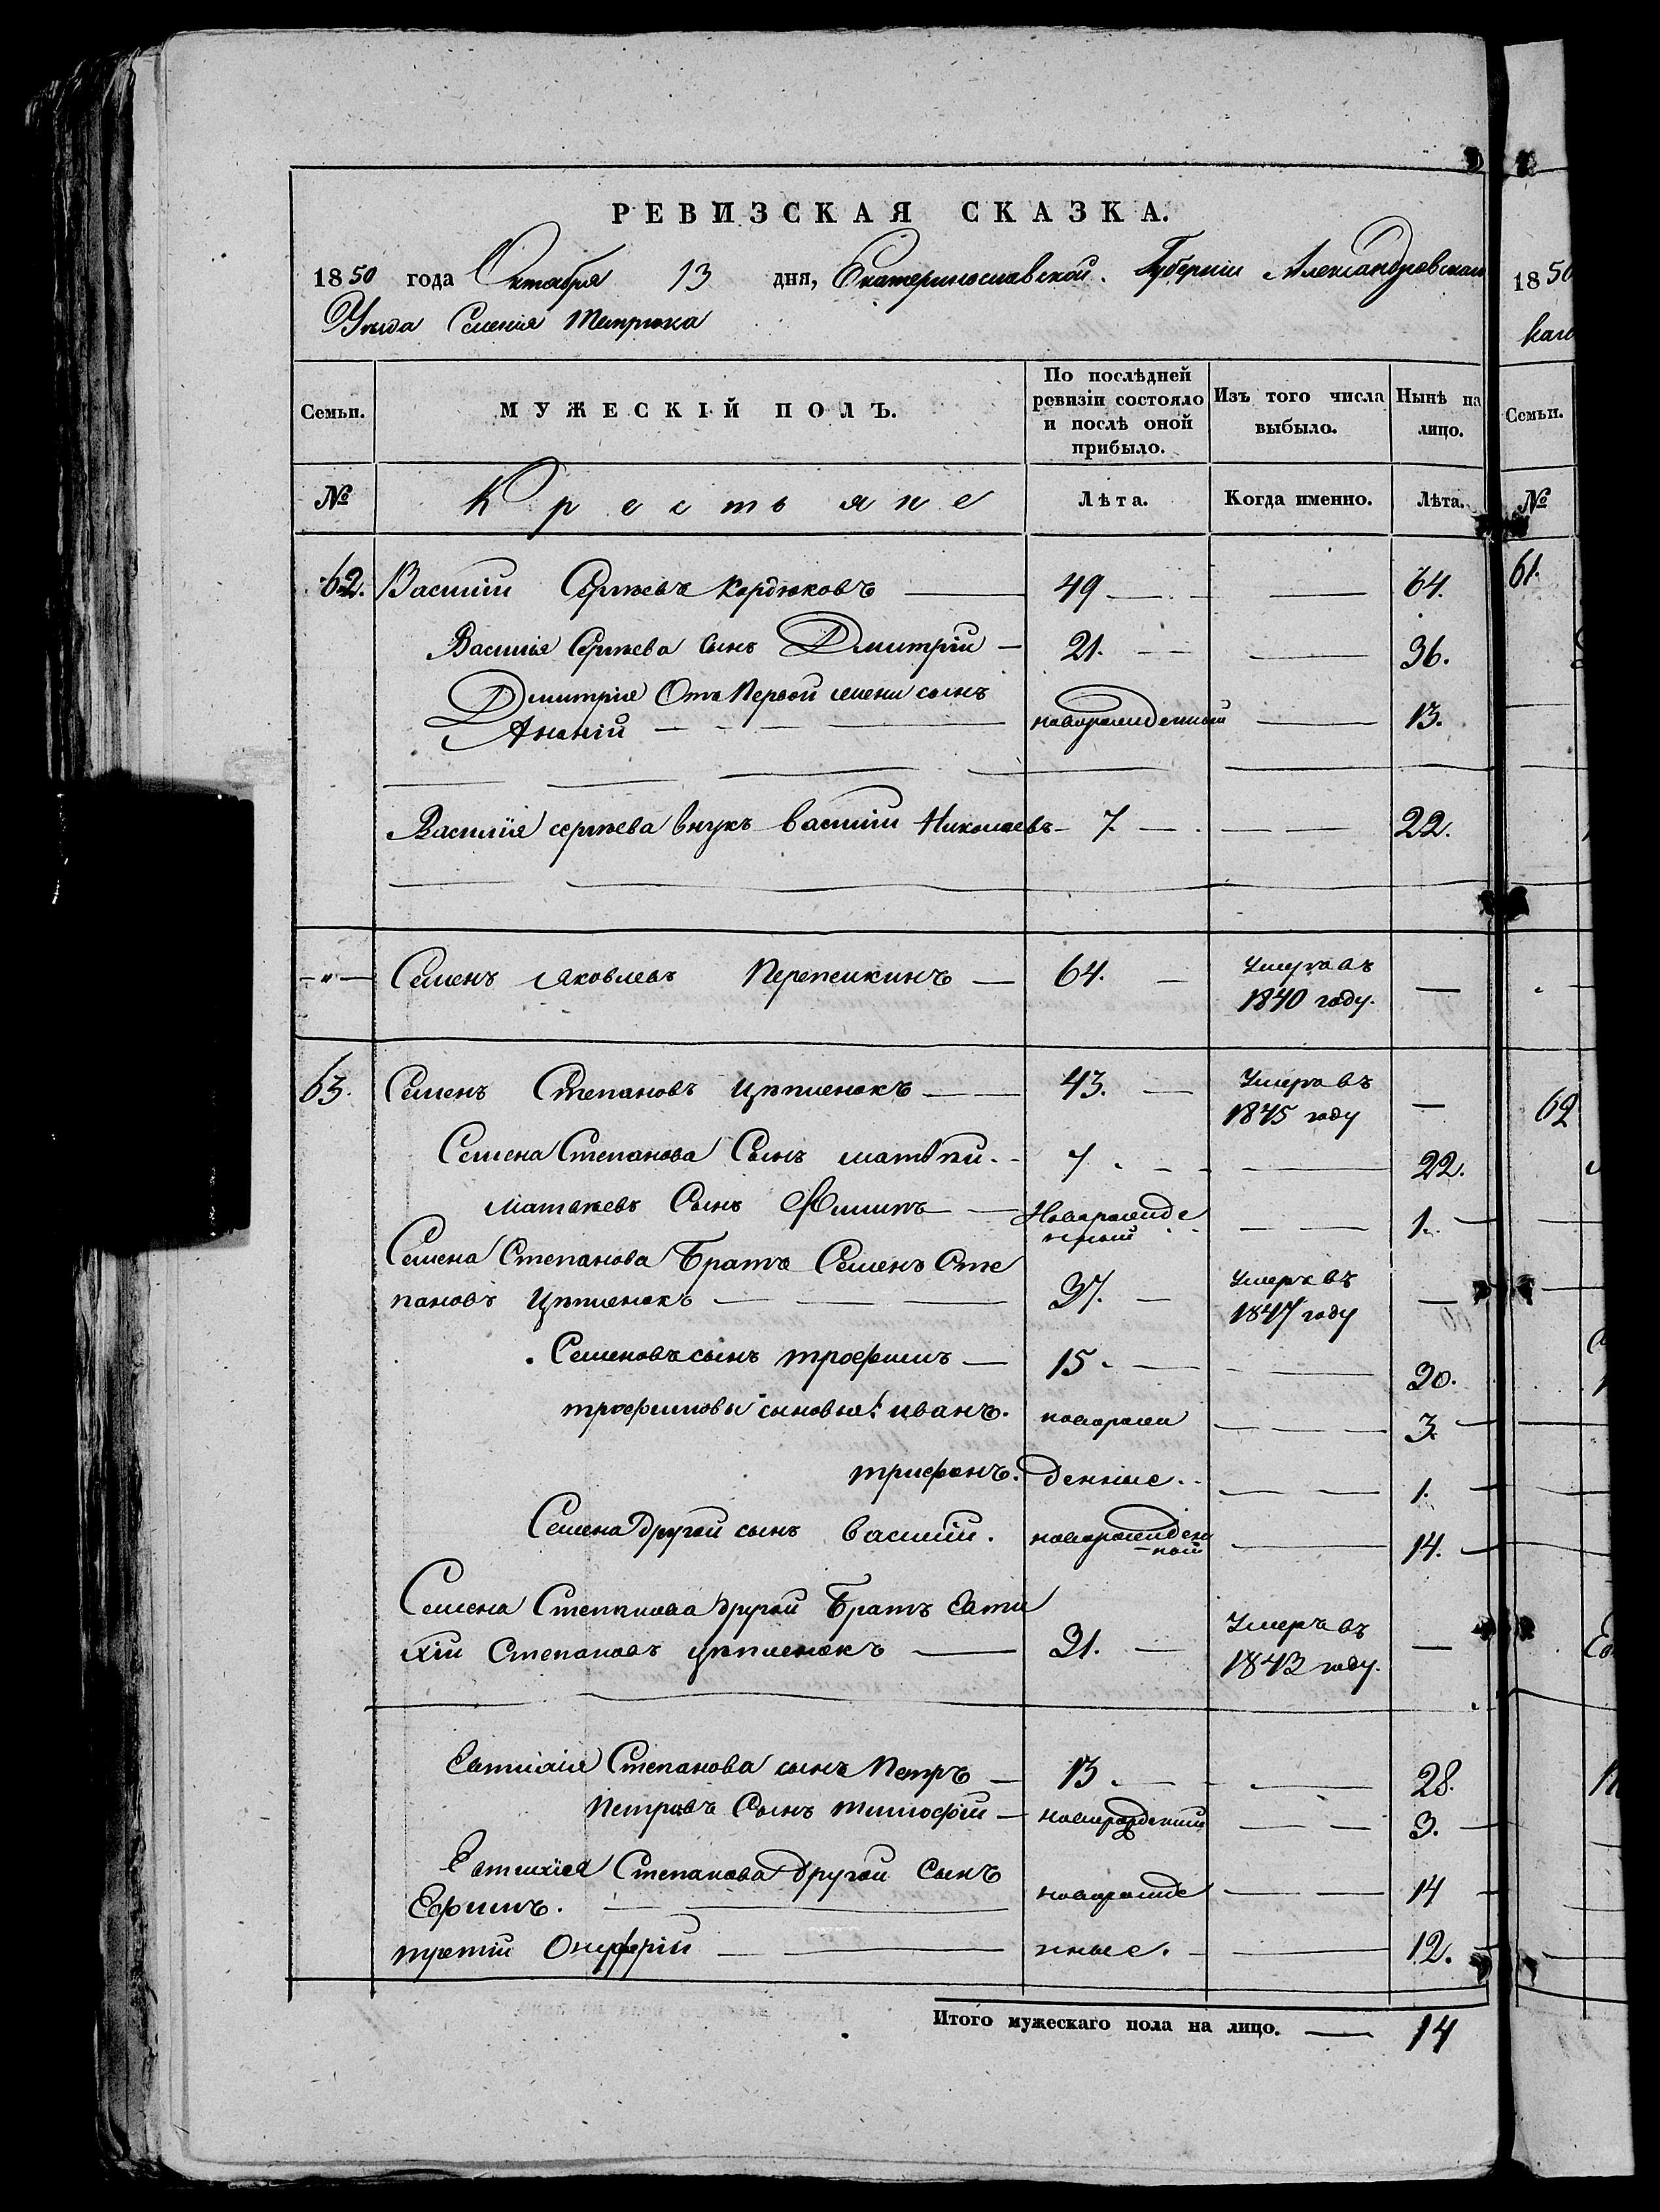 РЕВИЗСКАЯ СКАЗКА.
1850 года Октября 13 дня, Екатеринославской Губернии Александровскаго
Уезда Селения Темрюка
Семьи. МУЖЕСКІЙ ПОЛЪ. По послѣдней ревизіи состояло и послѣ оной прибыло. Изъ того числа выбыло. Нынѣ на лицо.
№ Крестьяне Лѣта. Когда именно. Лѣта.
62. Василий Сергѣевъ Кордюковъ 49 64.
Василія Сергѣева сынъ Дмитрій 21. 36.
Дмитрія Отъ Первой жены сынъ
Ананій новорожденный 13.
Василія сергѣева внукъ василий Николаевъ 7. 22.
-"- Семенъ яковлевъ 64. Умеръ въ
1840 году.
63. Семенъ Степановъ 43. Умеръ въ
1845 году
Семена Степанова Сынъ матвѣй. 7 22.
матвѣевъ Сынъ Филипъ Новорожде
нный 1.
Семена Степанова Братъ Семенъ Сте
пановъ 37. Умеръ въ
1847 году
Семеновъ сынъ трофимъ 15. 30.
трофимовы сыновья: иванъ. новорож 3.
трифонъ. денные. 1.
Семена другой сынъ василий. новорожден
ной 14.
Семена Степанова другой Братъ Евти
хій Степановъ 31. Умеръ въ
1843 году.
Евтихія Степанова сынъ Петръ 13. 28.
Петровъ Сынъ тимофій новорожденный 3.
Евтихія Степанова другой Сынъ
Ефимъ. новорожде 14
третій Онуфрій нные. 12.
Итого мужескаго пола на лицо. 14
1850
Семьи.
№
61.
62